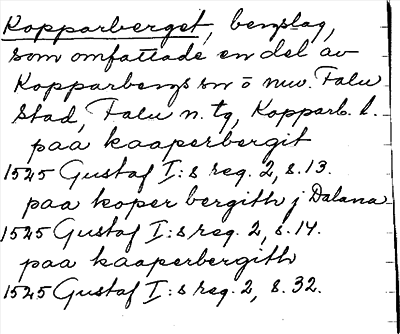 Kopparberget, bergslag,
som omfattade en del av
Kopparbergs sn o nuv. Falu
Stad, Falu n. tg, Kopparb. l.
paa kaaperbergit
1525 Gustaf I:s reg. 2, s. 13.
paa koper bergith j Dalana
1525 Gustaf I:s reg. 2, s. 14.
paa kaaperbergith
1525 Gustaf I:s reg. 2, s. 32.